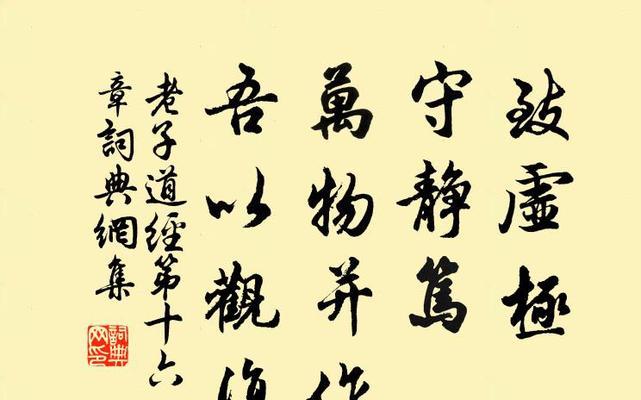 致虛極
守靜篤
萬物并作
吾以觀復
老子道經第十六
章詞典網集
詞典网印